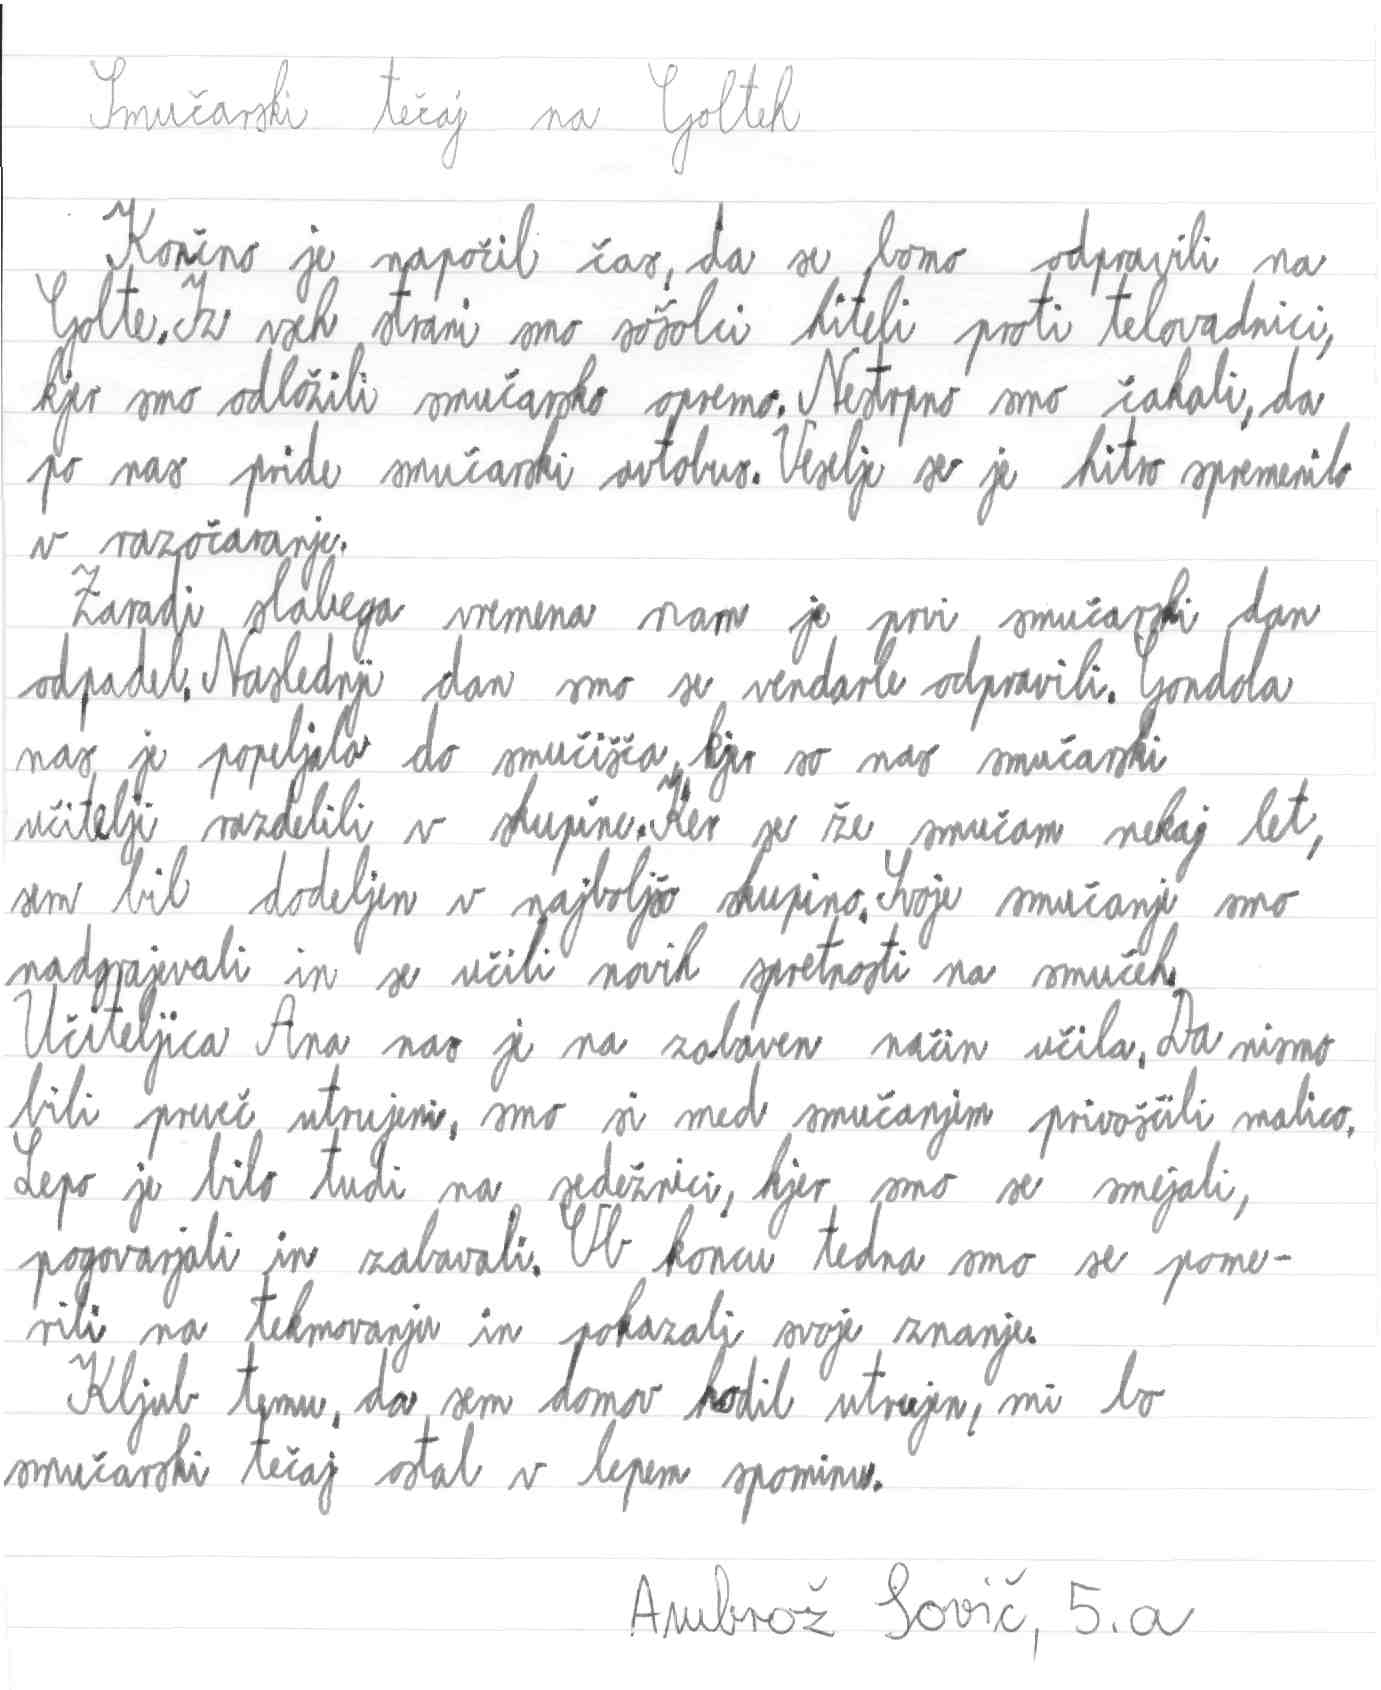 Smučarski tečaj na Golteh
Končno je napočil čas, da se bomo odpravili na
Golte. Iz vseh strani smo sošolci hiteli proti telovadnici,
kjer smo odložili smučarsko opremo. Nestrpno smo čakali, da
po nas pride smučarski avtobus. Veselje se je hitro spremenilo
v razočaranje.
Zaradi slabega vremena nam je prvi smučarski dan
odpadel. Naslednji dan smo se vendarle odpravili. Gondola
nas je popeljala do smučišča, kjer so nas smučarski
učitelji razdelili v skupine. Ker se že smučam nekaj let,
sem bil dodeljen v najboljšo skupino. Svoje smučanje smo
nadgrajevali in se učili novih spretnosti na smučeh.
Učiteljica Ana nas je na zabaven način učila. Da nismo
bili preveč utrujeni, smo si med smučanjem privoščili malico.
Lepo je bilo tudi na sedežnici, kjer smo se smejali,
pogovarjali in zabavali. Ob koncu tedna smo se pome-
rili na tekmovanju in pokazali svoje znanje.
Kljub temu, da sem domov hodil utrujen, mi bo
smučarski tečaj ostal v lepem spominu.
Ambrož Sovič, 5.a